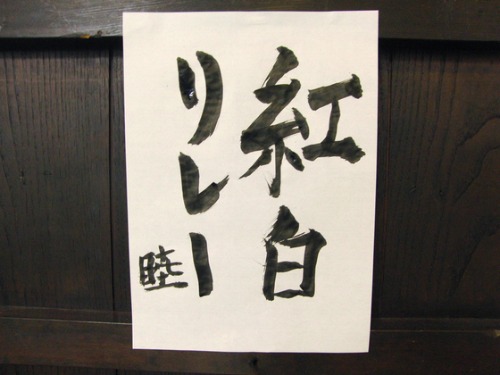 紅白
リレー
睦